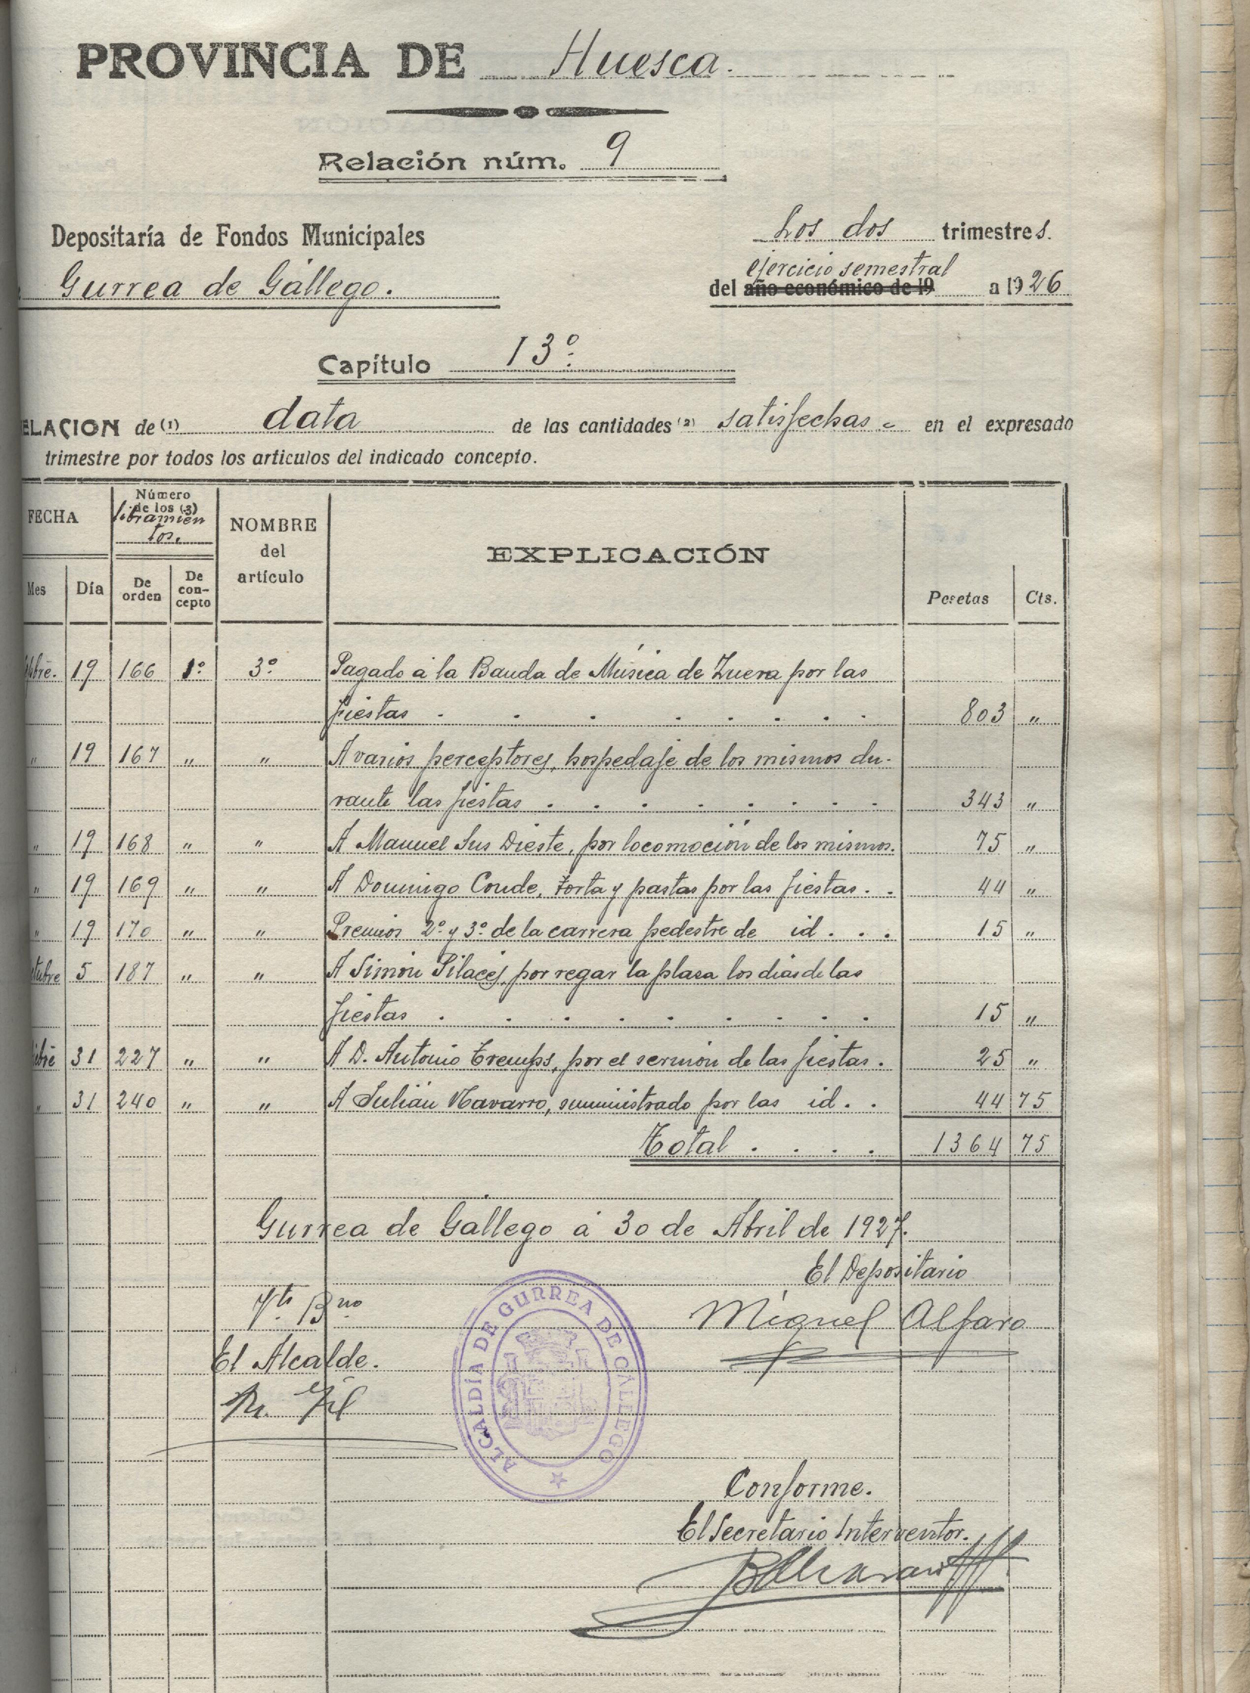 PROVINCIA DE Huesca.
Relación núm. 9
Depositaría de Fondos Municipales
Los dos trimestres.
Gurrea de Gállego.
ejercicio semestral
del año económico de 19 a 1926
Capítulo 13º
ELACION de (1) data de las cantidades (2) satisfechas en el expresado
trimestre por todos los articulos del indicado concepto.
FECHA Número de los (3) libramientos. NOMBRE del artículo EXPLICACIÓN
Mes Día De orden De concepto Pesetas Cts.
bre. 19 166 1º 3º Pagado á la Banda de Música de Zuera por las
fiestas . . . . . . . . 803 "
" 19 167 " " A varios perceptores, hospedaje de los mismos du-
rante las fiestas . . . . . . . . 343 "
" 19 168 " " A Manuel Sus Dieste, por locomoción de los mismos. 75 "
" 19 169 " " A Domingo Conde, torta y pastas por las fiestas . . 44 "
" 19 170 " " Premios 2º y 3º de la carrera pedestre de id . . . 15 "
tubre 5 187 " " A Simón Pilacés, por regar la plaza los días de las
fiestas . . . . . . . . 15 "
bre 31 227 " " A D. Antonio Tremps, por el sermón de las fiestas . 25 "
" 31 240 " " A Julián Navarro, suministrado por las id . . 44 75
Total . . . . 1364 75
Gurrea de Gállego á 30 de Abril de 1927.
El Depositario
Vto Bno
Miguel Alfaro
El Alcalde.
M. Gil
ALCALDÍA DE GURREA DE GALLEGO
Conforme.
El Secretario Interventor.